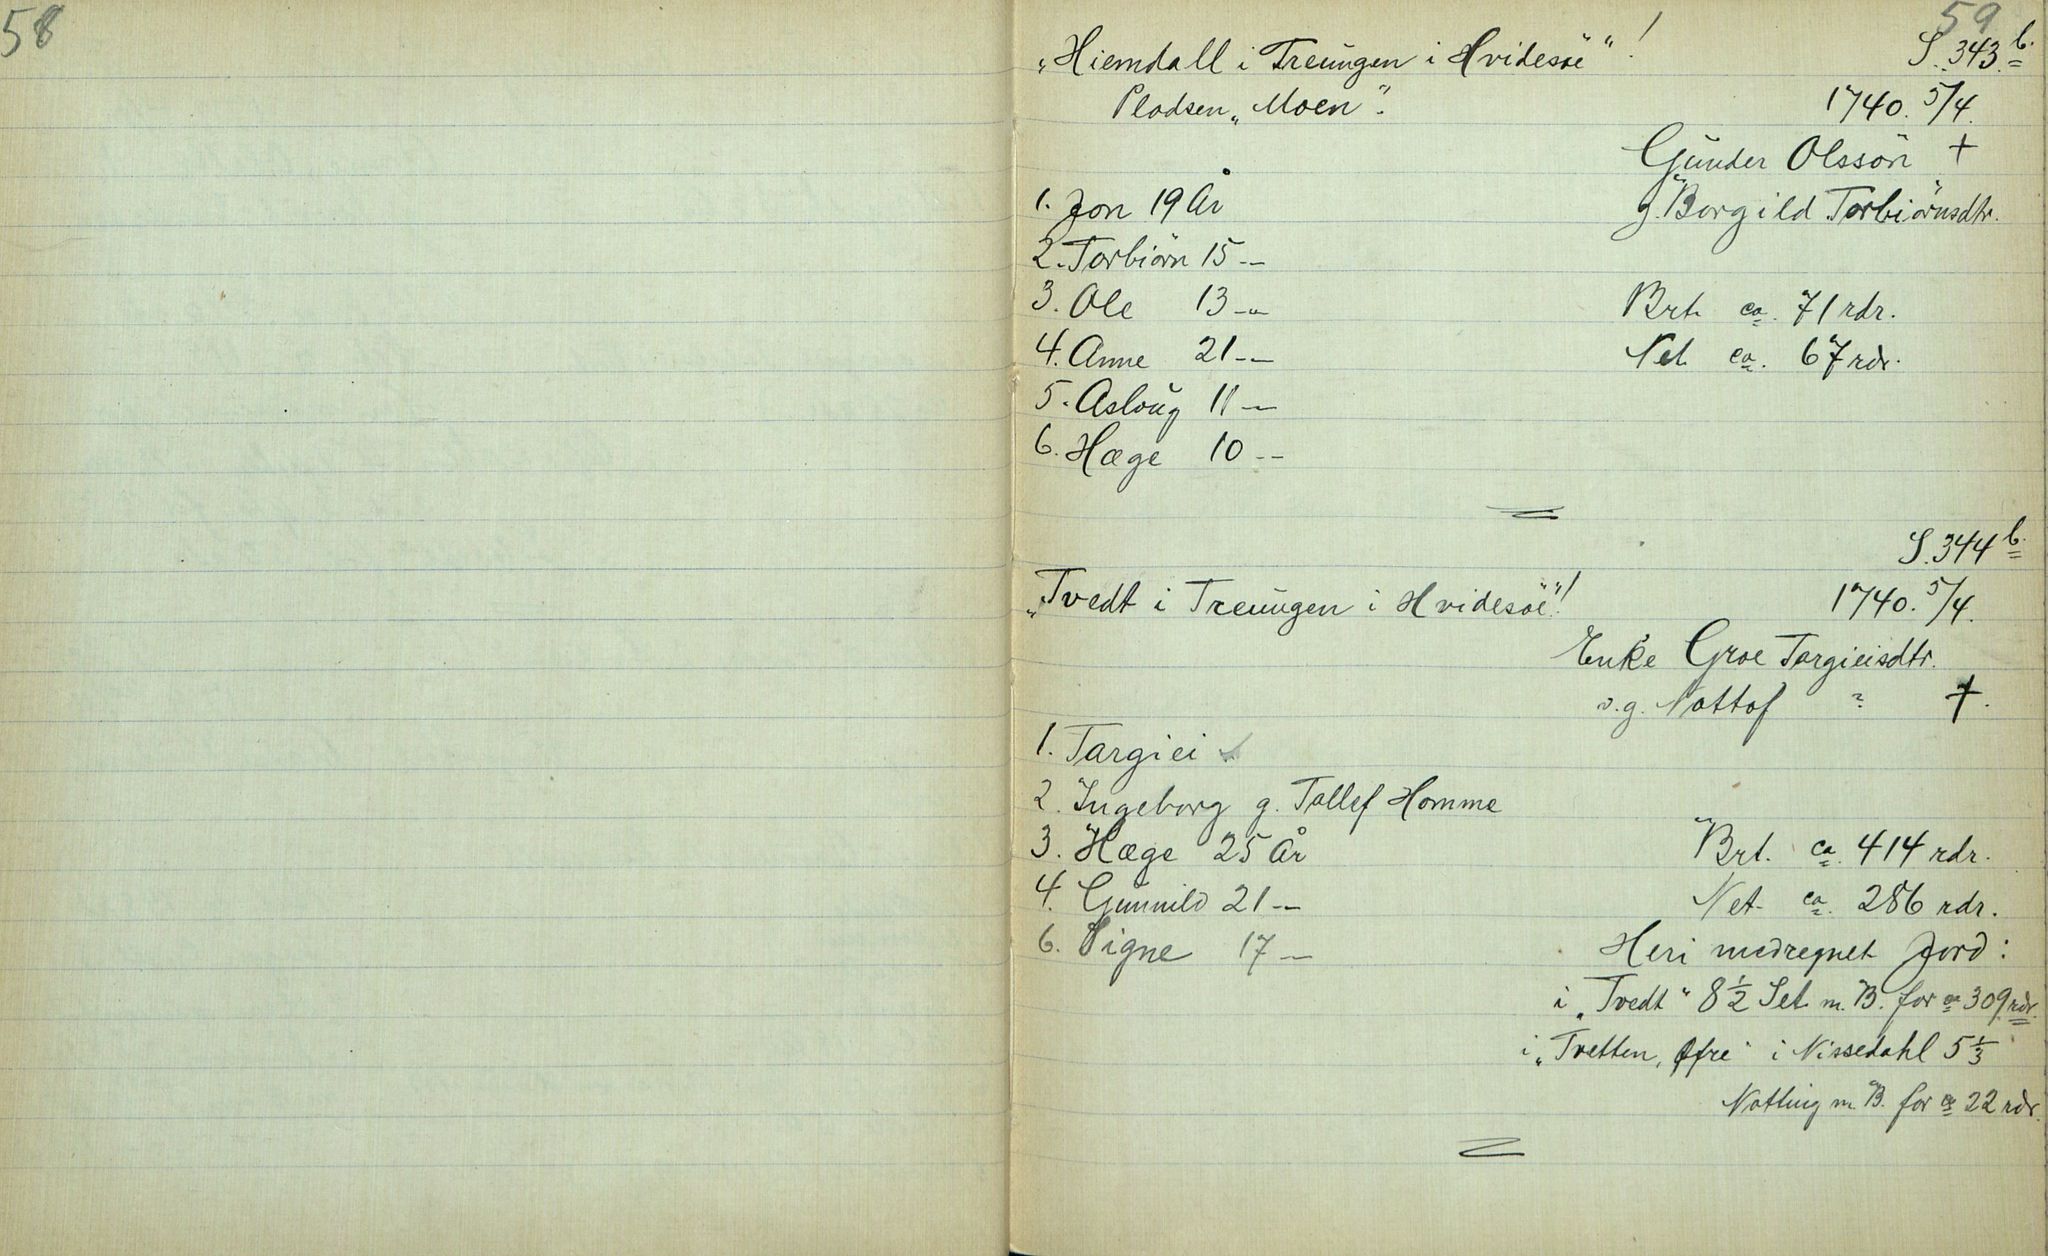 58
59
„Hiemdall i Treungen i Hvidesöe“!
S. 343 b.
Pladsen „Moen“.
1740. 5/4.
Gunder Olssön †
g. Borgild Torbiörnsdtr.
1. Jon 19 År
2. Torbiörn 15 -„-
3. Ole 13 -„-
Brt. ca. 71 rdr.
4. Anne 21 -„-
Net. ca. 67 rdr.
5. Asloug 11 -„-
6. Hæge 10 -„-
S. 344 b.
„Tvedt i Treungen i Hvidesöe“!
1740. 5/4.
Enke Groe Targieisdtr.
v. g. Nottof ? †.
1. Targiei
2. Ingeborg g. Tallef Homme
3. Hæge 25 År
Brt. ca. 414 rdr.
4. Gunnild 21 -„-
Net. ca. 286 rdr.
6. Signe 17 -„-
Heri medregnet Jord:
i „Tvedt“ 8 1/2 Set. m. B. for ca 309 rdr.
i „Tvetten, Øfre“ i Nissedahl 5 1/3
Notling m. B. for ca 22 rdr.